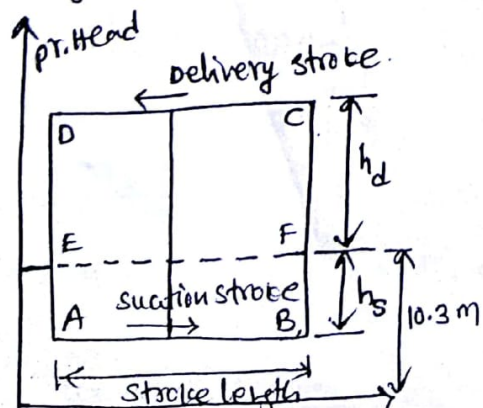 pr.Head
Delivery stroke.
D
C
hd
E
F
suction stroke
hs
A
B
10.3 m
stroke length